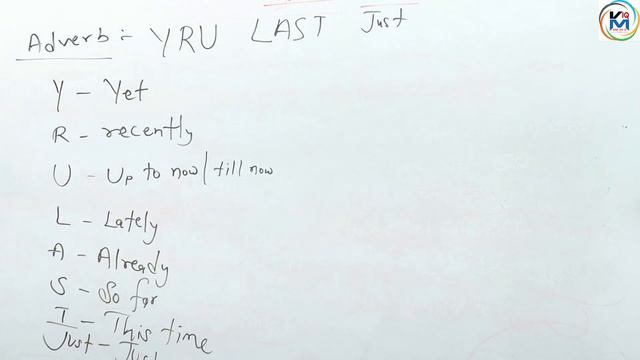 Adverb :- YRU LAST Just
Y - Yet
R - recently
U - Up to now / till now
L - Lately
A - Already
S - So far
T - This time
Just - Just
KIQ
M